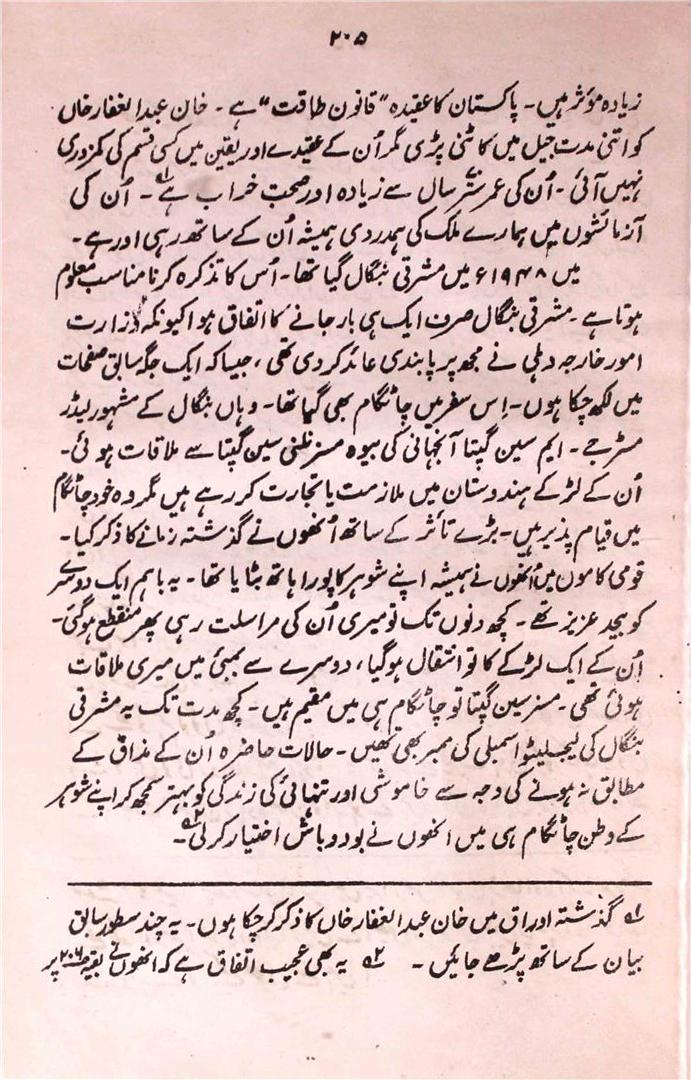 ۲۰۵
زیادہ مؤثر ہیں۔ پاکستان کا عقیدہ "قانون طاقت" ہے۔ خان عبدالغفار خاں
کو اتنی مدت جیل میں کاٹنی پڑی مگر اُن کے عقیدے اور یقین میں کسی قسم کی کمزوری
نہیں آئی۔ اُن کی عمر ستّر سال سے زیادہ اور صحت خراب ہے۱؎۔ اُن کی
آزمائشوں میں ہمارے ملک کی ہمدردی ہمیشہ اُن کے ساتھ رہی اور ہے۔
میں ۱۹۴۸ء میں مشرقی بنگال گیا تھا۔ اُس کا تذکرہ کرنا مناسب معلوم
ہوتا ہے۔ مشرقی بنگال صرف ایک ہی بار جانے کا اتفاق ہوا کیونکہ وزارت
امور خارجہ دہلی نے مجھ پر پابندی عائد کردی تھی، جیسا کہ ایک جگہ سابق صفحات
میں لکھ چکا ہوں۔ اِس سفر میں چاٹگام بھی گیا تھا۔ وہاں بنگال کے مشہور لیڈر
مسٹر جے۔ ایم سین گپتا آنجہانی کی بیوہ مسز نلنی سین گپتا سے ملاقات ہوئی۔
اُن کے لڑکے ہندوستان میں ملازمت یا تجارت کر رہے ہیں مگر وہ خود چاٹگام
میں قیام پذیر ہیں۔ بڑے تأثر کے ساتھ اُنھوں نے گذشتہ زمانے کا ذکر کیا۔
قومی کاموں میں اُنھوں نے ہمیشہ اپنے شوہر کا پورا ہاتھ بٹایا تھا۔ یہ باہم ایک دوسرے
کو بیحد عزیز تھے۔ کچھ دنوں تک تو میری اُن کی مراسلت رہی پھر منقطع ہوگئی۔
اُن کے ایک لڑکے کا تو انتقال ہوگیا، دوسرے سے بمبئی میں میری ملاقات
ہوئی تھی۔ مسز سین گپتا تو چاٹگام ہی میں مقیم ہیں۔ کچھ مدت تک یہ مشرقی
بنگال کی لیجسلیٹو اسمبلی کی ممبر بھی تھیں۔ حالات حاضرہ اُن کے مذاق کے
مطابق نہ ہونے کی وجہ سے خاموشی اور تنہائی کی زندگی کو بہتر سمجھ کر اپنے شوہر
کے وطن چاٹگام ہی میں انھوں نے بود و باش اختیار کرلی۲؎۔
۱؎ گذشتہ اوراق میں خان عبدالغفار خاں کا ذکر کر چکا ہوں۔ یہ چند سطور سابق
بیان کے ساتھ پڑھے جائیں۔ ۲؎ یہ بھی عجیب اتفاق ہے کہ انھوں نے بقیہ ص۲۰۶ پر